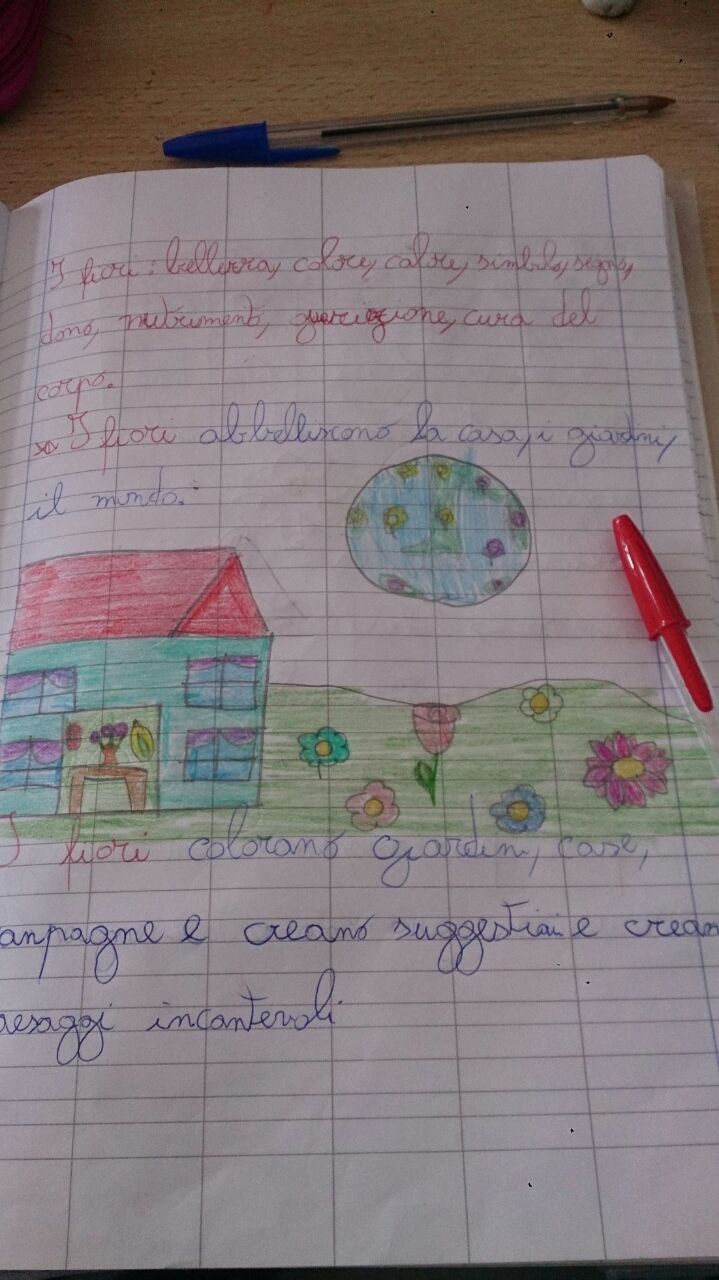 I fiori: bellezza, colore, calore, simbolo, segno,
dono, nutrimento, guarigione, cura del
corpo.
I fiori abbelliscono la casa, i giardini,
il mondo.
I fiori colorano giardini, case,
anpagne e creano suggestioni e crean
aesaggi incantevoli